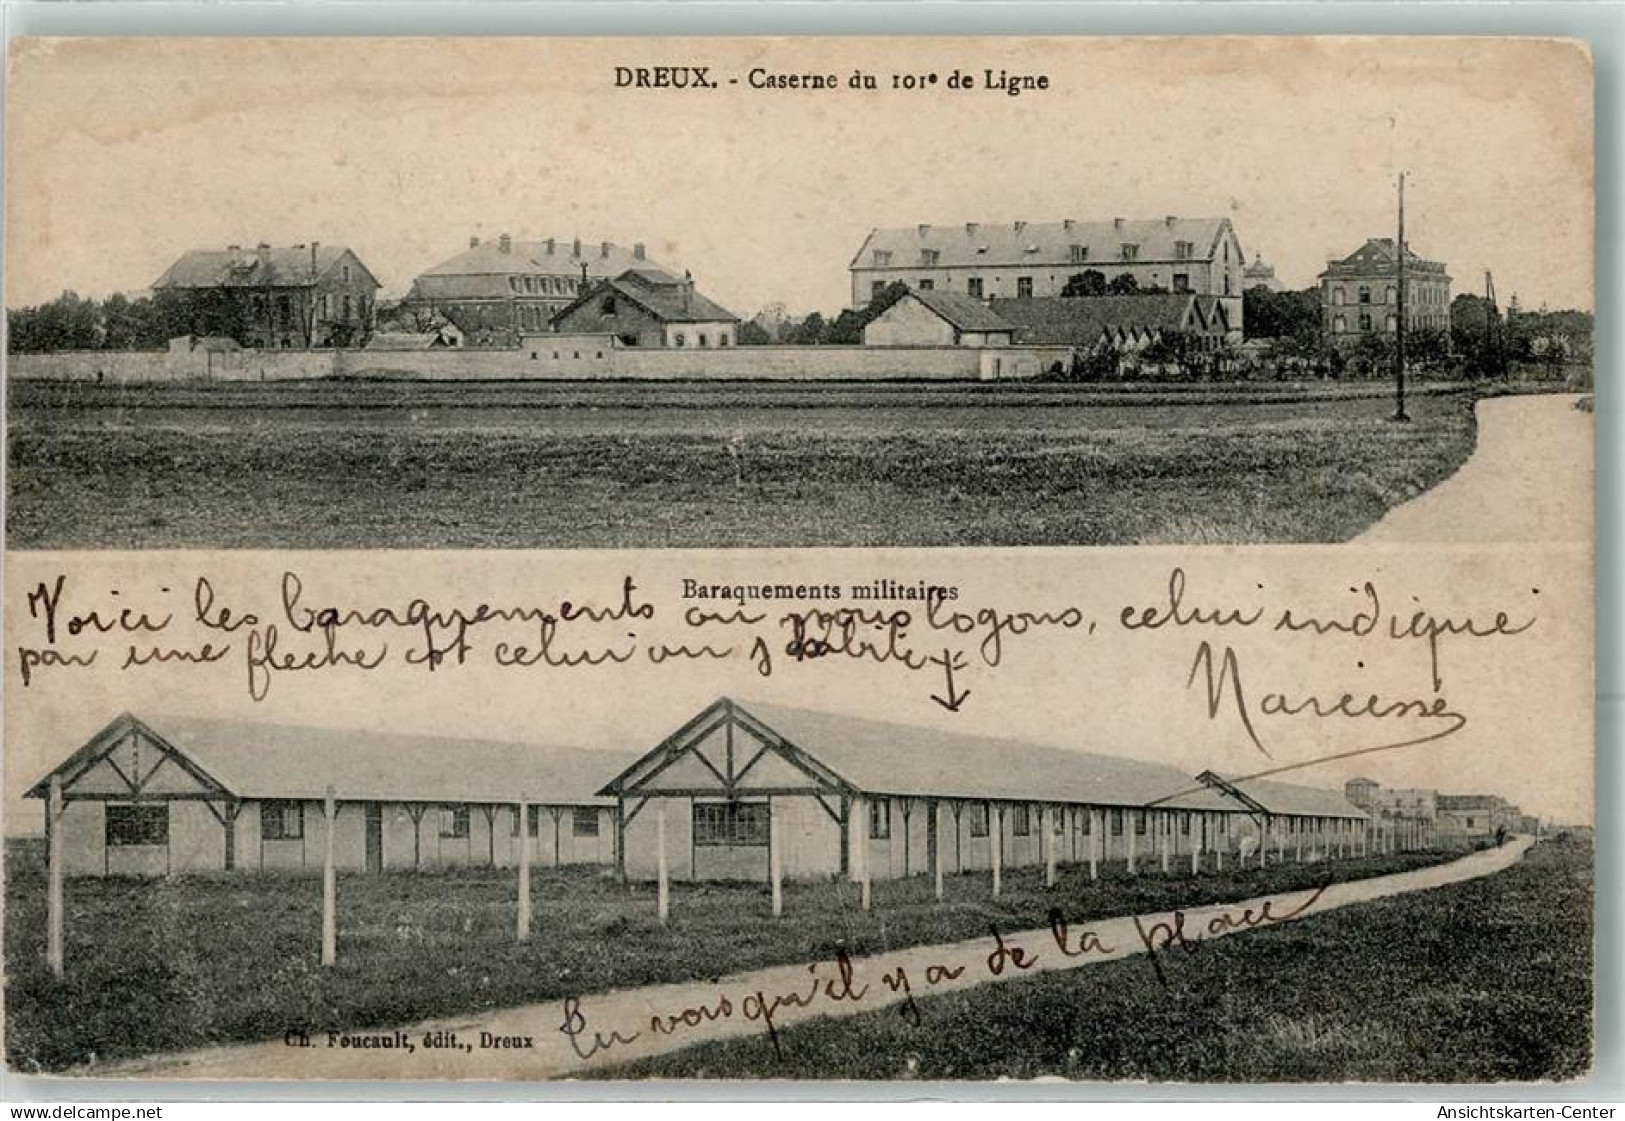 DREUX. - Caserne du 101e de Ligne
Baraquements militaires
Voici les baraquements ou nous logons, celui indiqué
par une fleche est celui ou j habite
Narcisse
Tu vois qu'il y a de la place
Ch. Foucault, édit., Dreux
www.delcampe.net
Ansichtskarten-Center